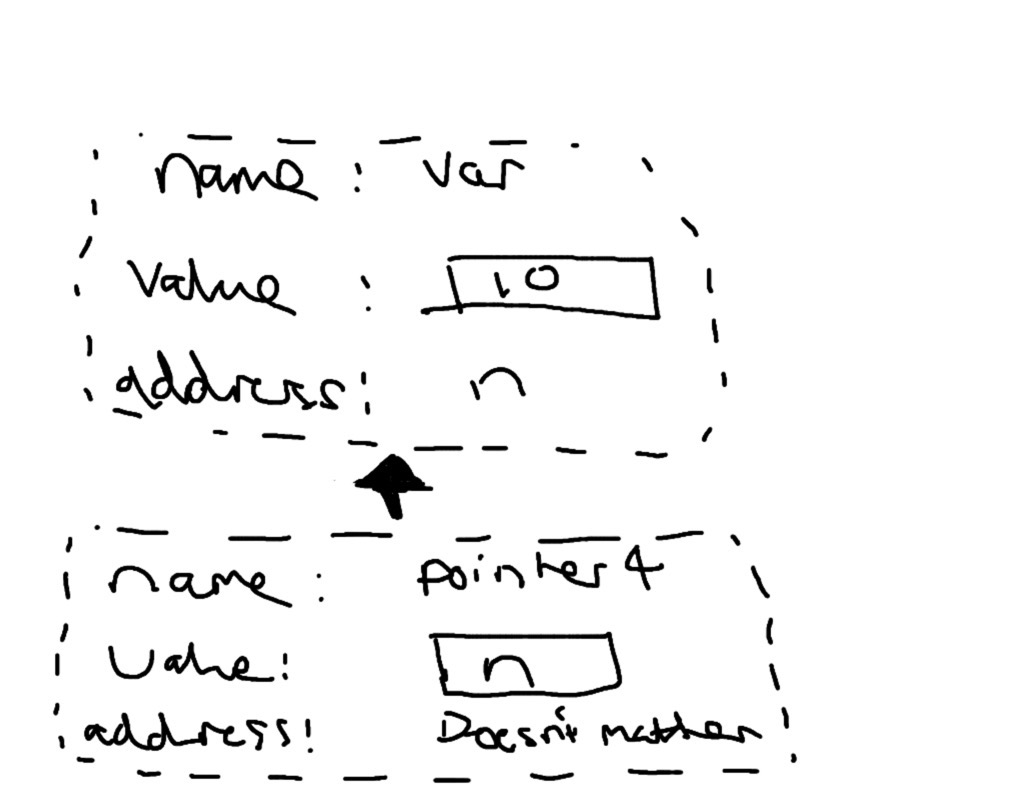 name : var
value : 10
address : n
name : pointer 4
value : n
address : Doesn't matter